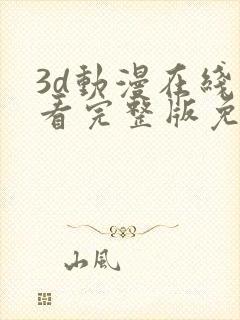 3d動漫在綫
看完整版免
山風